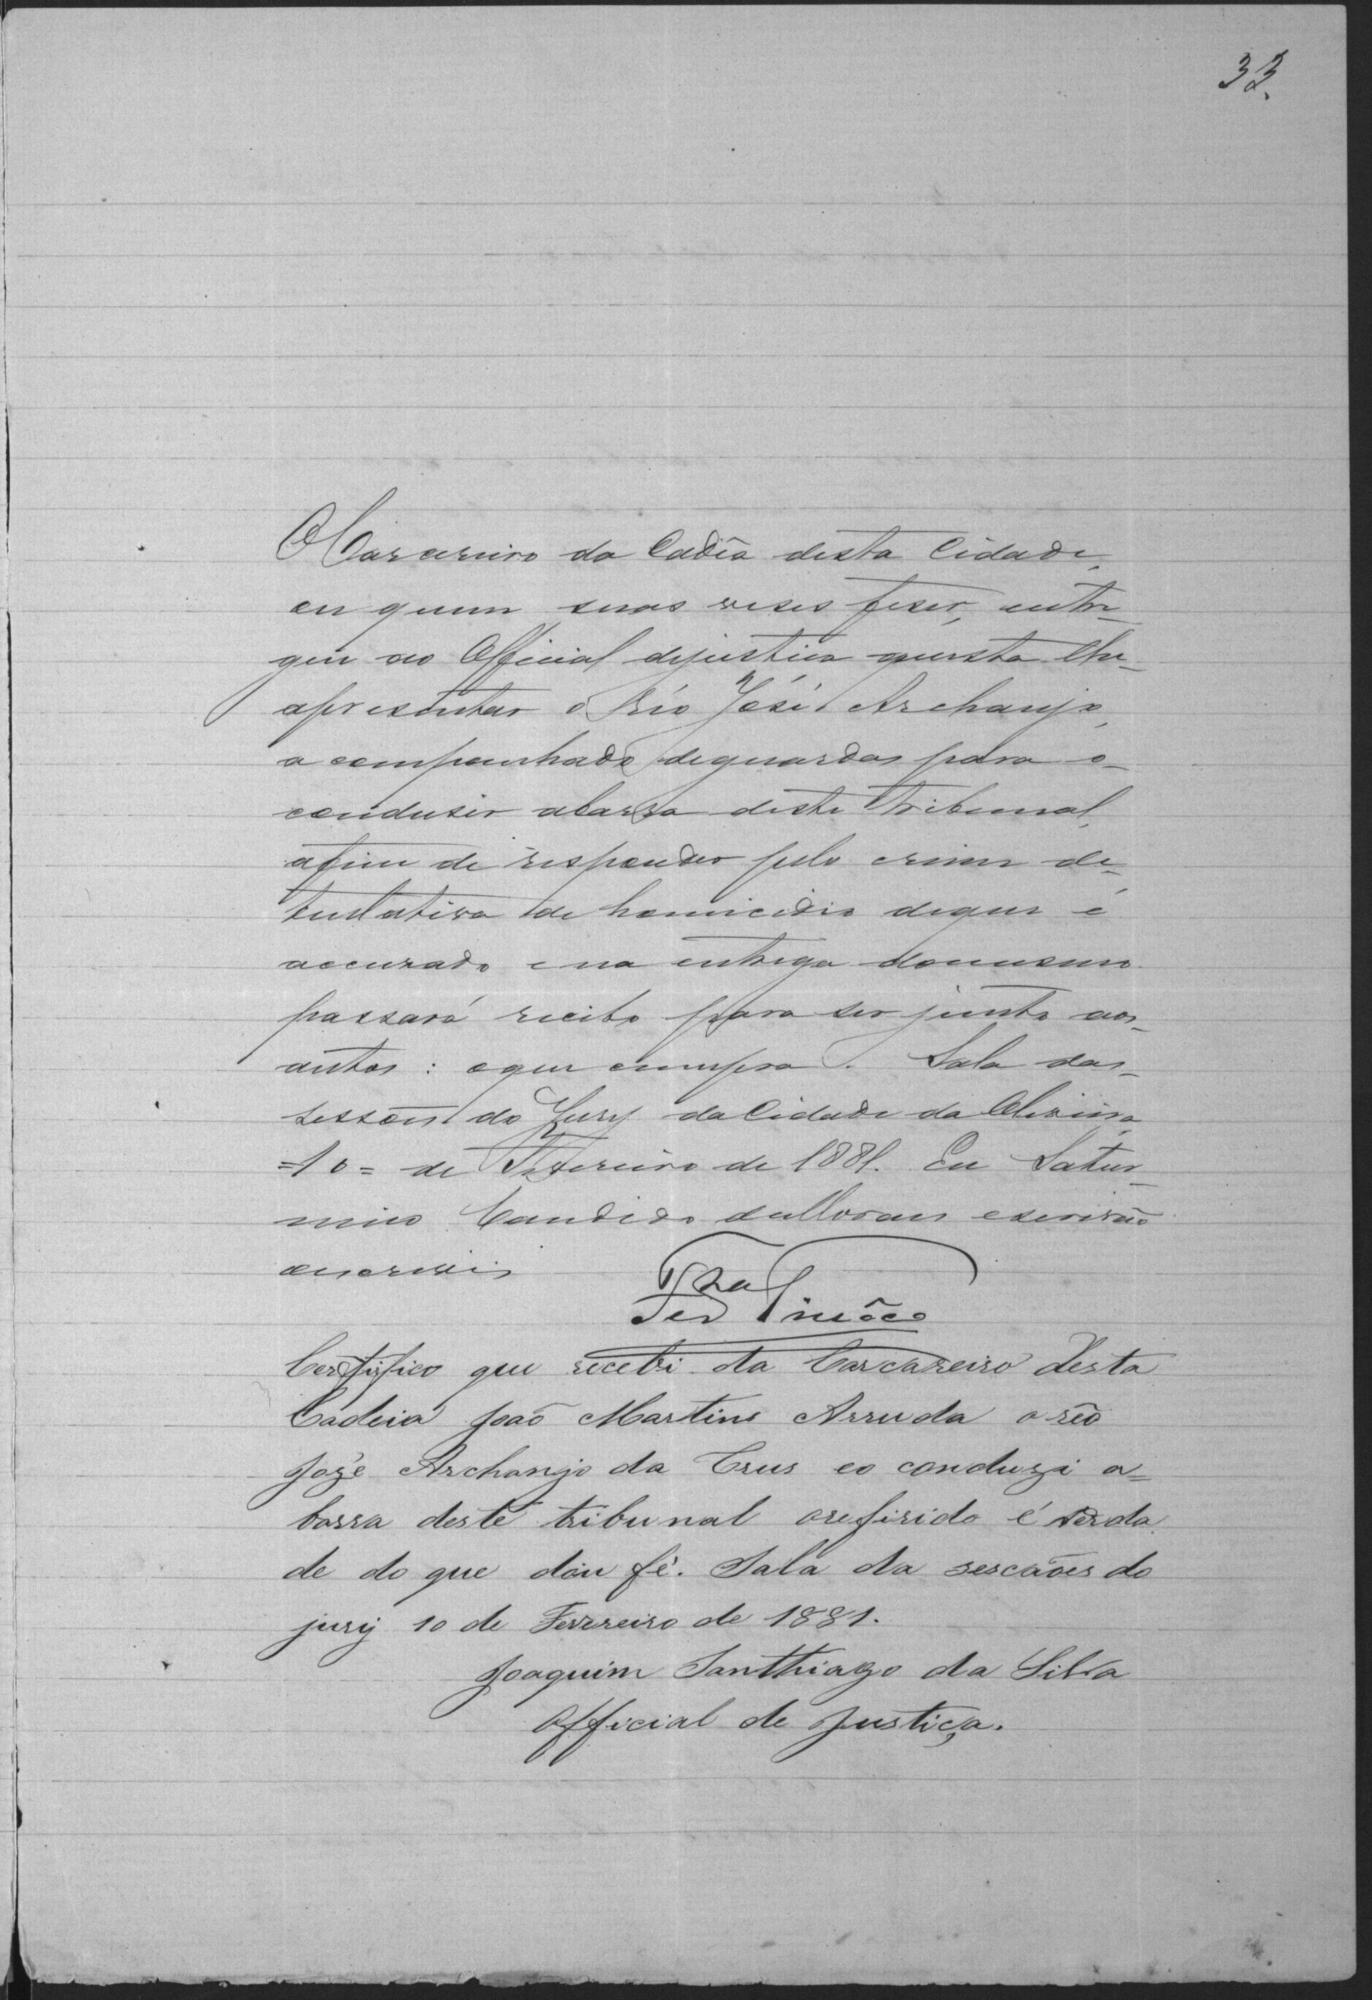 33.
O Carcereiro da Cadêa desta Cidade,
ou quem suas veses feser, entre-
gue ao Official dejustiça queesta lhe
apresentar o Réo José Archanjo,
acompanhado deguardas para o
condusir abarra deste Tribunal,
afim de responder pelo crime de
tentativa de homicidio deque é
accusado e na entrega domesmo
passará recibo para ser junto aos
autos: oque cumpra. Sala das
sessões do Jury da Cidade da Oliveira,
=10= de Fevereiro de 1881. Eu Satur-
nino Candido deMoraes escrivão
oescrevi
Tinôco
Certifico que recebi da Carcareiro desta
Cadeia João Martins Arruda o réo
José Archanjo da Crus eo conduzi a=
barra deste tribunal oreferido é verda
de do que dou fé. Sala da sescaões do
jury 10 de Fevereiro de 1881.
Joaquim Santhiago da Silva
Official de Justiça.